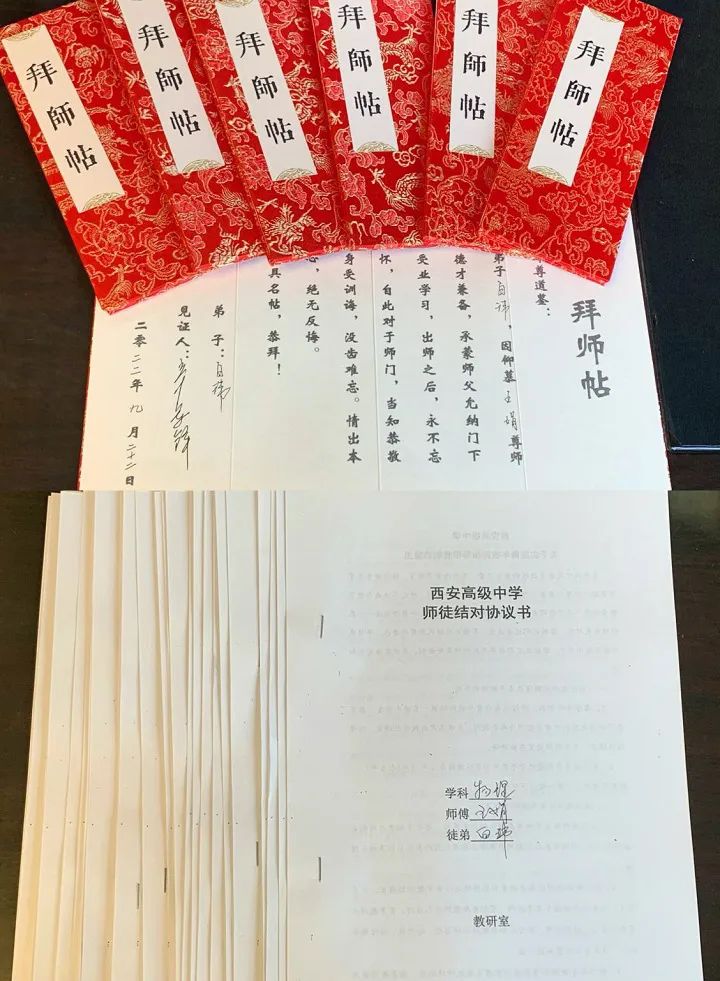 拜師帖
拜師帖
拜師帖
拜師帖
拜師帖
拜師帖
拜师帖
尊道鉴：
弟子白玮，因仰慕王娟尊师
德才兼备，承蒙师父允纳门下
受业学习，出师之后，永不忘
怀，自此对于师门，当知恭敬
身受训诲，没齿难忘。情出本
心，绝无反悔。
具名帖，恭拜！
弟子：白玮
见证人：
二零二二年九月二十二日
西安高级中学
师徒结对协议书
学科 物理
师傅 王娟
徒弟 白玮
教研室